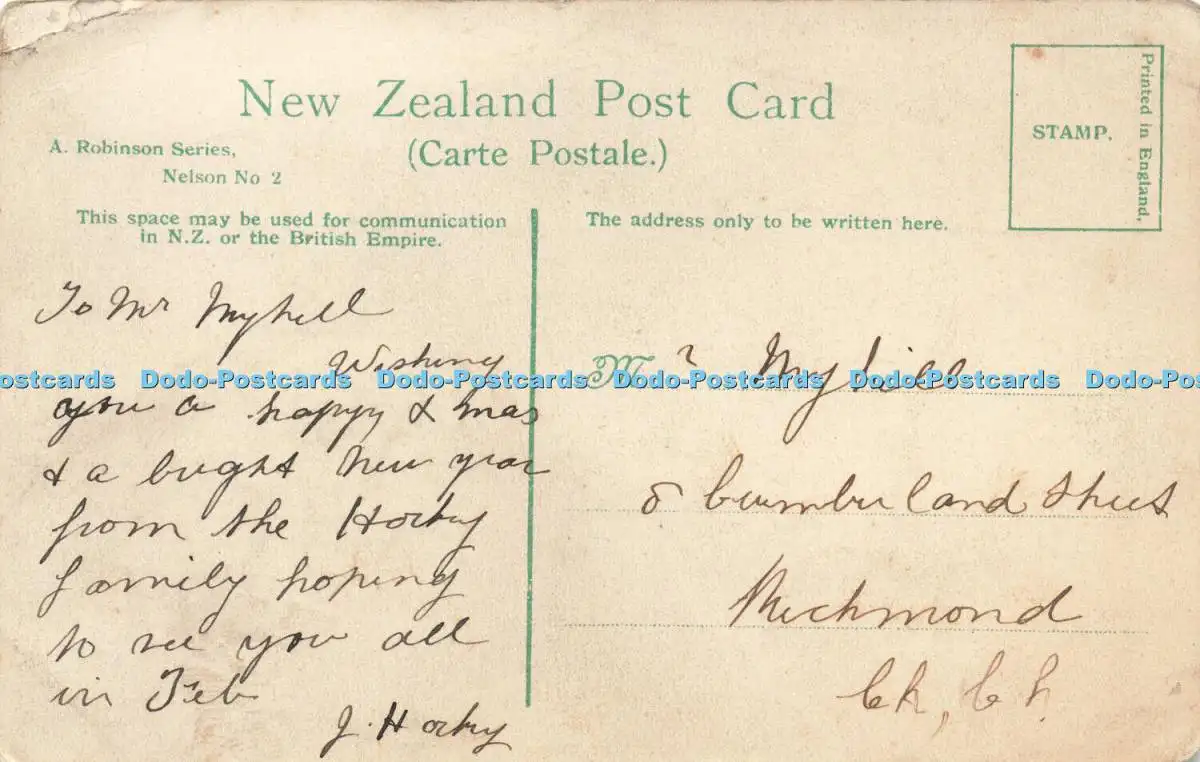 New Zealand Post Card
(Carte Postale.)
A. Robinson Series,
Nelson No 2
STAMP.
Printed in England.
This space may be used for communication
in N.Z. or the British Empire.
The address only to be written here.
To Mr Myhill
Wishing
you a happy Xmas
& a bright New year
from the Horby
family hoping
to see you all
in Feb
J. Horby
Mr Myhill
8 Cumberland Street
Richmond
Ch, Ch.
Dodo-Postcards Dodo-Postcards Dodo-Postcards Dodo-Postcards Dodo-Postcards